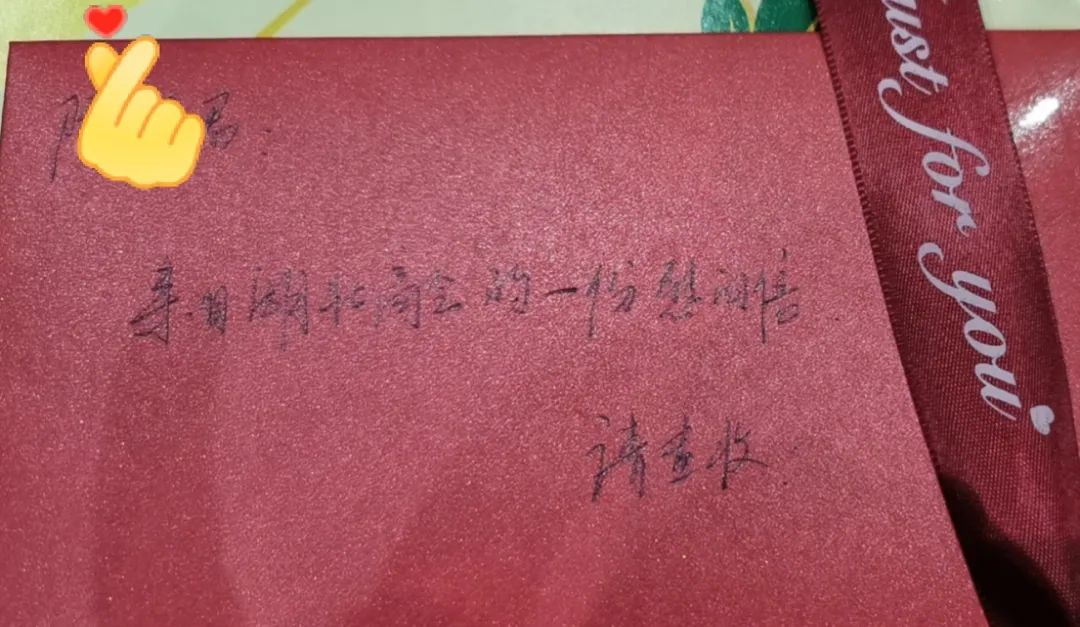 君.
来自湖北商会的一份慰问信.
请查收.
Just for you